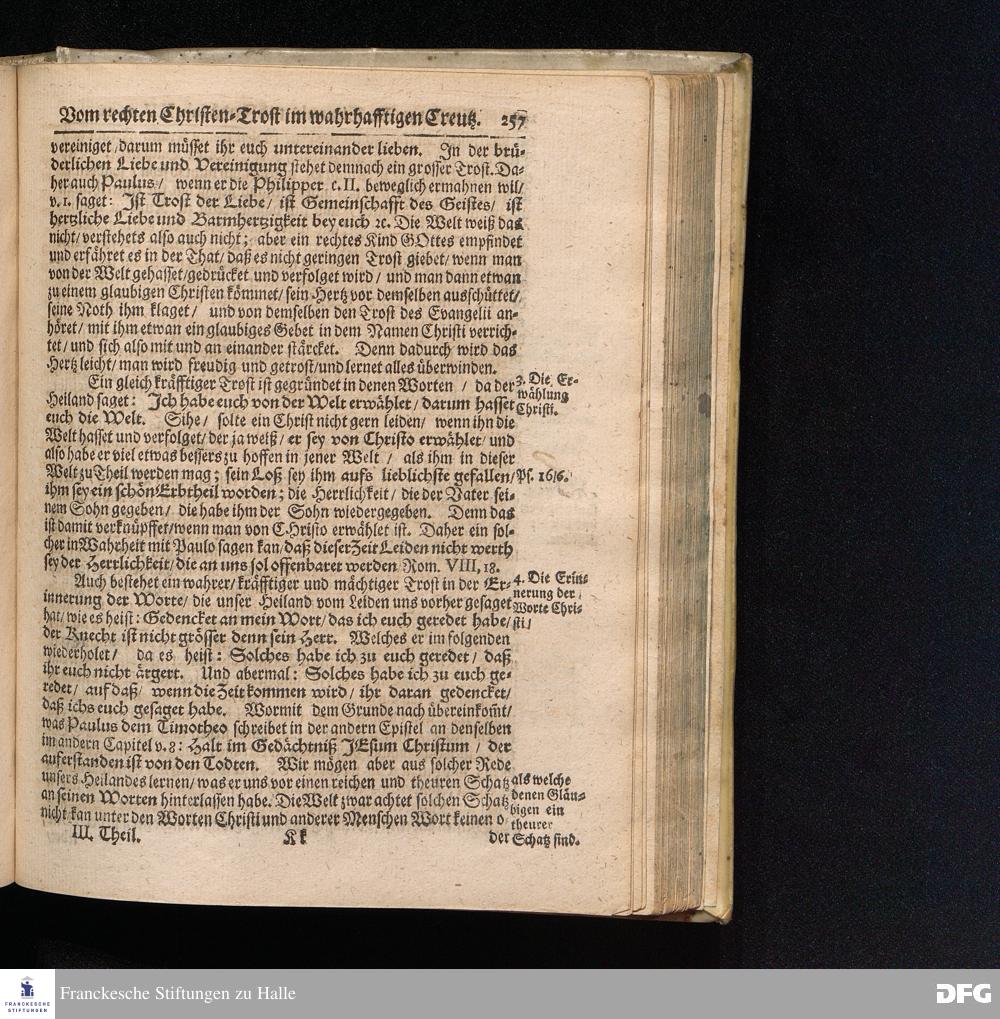 Vom rechten Christen-Trost im wahrhafftigen Creutz. 257
vereiniget/ darum müsset ihr euch untereinander lieben. In der brü-
derlichen Liebe und Vereinigung stehet demnach ein grosser Trost. Da-
her auch Paulus/ wenn er die Philipper c. II. beweglich ermahnen wil/
v. 1. saget: Ist Trost der Liebe/ ist Gemeinschafft des Geistes/ ist
hertzliche Liebe und Barmhertzigkeit bey euch ꝛc. Die Welt weiß das
nicht/ verstehets also auch nicht; aber ein rechtes Kind GOttes empfindet
und erfähret es in der That/ daß es nicht geringen Trost giebet/ wenn man
von der Welt gehasset/ gedrücket und verfolget wird/ und man dann etwan
zu einem glaubigen Christen kömmet/ sein Hertz vor demselben ausschüttet/
seine Noth ihm klaget/ und von demselben den Trost des Evangelii an-
höret/ mit ihm etwan ein glaubiges Gebet in dem Namen Christi verrich-
tet/ und sich also mit und an einander stärcket. Denn dadurch wird das
Hertz leicht/ man wird freudig und getrost/ und lernet alles überwinden.
Ein gleich kräfftiger Trost ist gegründet in denen Worten / da der
Heiland saget: Ich habe euch von der Welt erwählet/ darum hasset
euch die Welt. Sihe/ solte ein Christ nicht gern leiden/ wenn ihn die
Welt hasset und verfolget/ der ja weiß/ er sey von Christo erwählet/ und
also habe er viel etwas bessers zu hoffen in jener Welt / als ihm in dieser
Welt zu Theil werden mag; sein Loß sey ihm aufs lieblichste gefallen/
ihm sey ein schön Erbtheil worden; die Herrlichkeit/ die der Vater sei-
nem Sohn gegeben/ die habe ihm der Sohn wiedergegeben. Denn das
ist damit verknüpffet/ wenn man von CHristo erwählet ist. Daher ein sol-
cher in Wahrheit mit Paulo sagen kan/ daß dieser Zeit Leiden nicht werth
sey der Herrlichkeit/ die an uns sol offenbaret werden Rom. VIII, 18.
Auch bestehet ein wahrer/ kräfftiger und mächtiger Trost in der Er-
innerung der Worte/ die unser Heiland vom Leiden uns vorher gesaget
hat/ wie es heist: Gedencket an mein Wort/ das ich euch geredet habe/
der Knecht ist nicht grösser denn sein Herr. Welches er im folgenden
wiederholet/ da es heist: Solches habe ich zu euch geredet/ daß
ihr euch nicht ärgert. Und abermal: Solches habe ich zu euch ge-
redet/ auf daß/ wenn die Zeit kommen wird/ ihr daran gedencket/
daß ichs euch gesaget habe. Wormit dem Grunde nach übereinkom̃t/
was Paulus dem Timotheo schreibet in der andern Epistel an denselben
im andern Capitel v. 8: Halt im Gedächtniß JEsum Christum / der
auferstanden ist von den Todten. Wir mögen aber aus solcher Rede
unsers Heilandes lernen/ was er uns vor einen reichen und theuren Schatz
an seinen Worten hinterlassen habe. Die Welt zwar achtet solchen Schatz
nicht/ kan unter den Worten Christi und anderer Menschen Wort keinen
III. Theil. Kk der
3. Die Er-
wählung
Christi.
Ps. 16/6.
4. Die Erin-
nerung der
Worte Chri-
sti/
als welche
denen Gläu-
bigen ein
theurer
Schatz sind.
FRANCKESCHE
STIFTUNGEN
Franckesche Stiftungen zu Halle
DFG